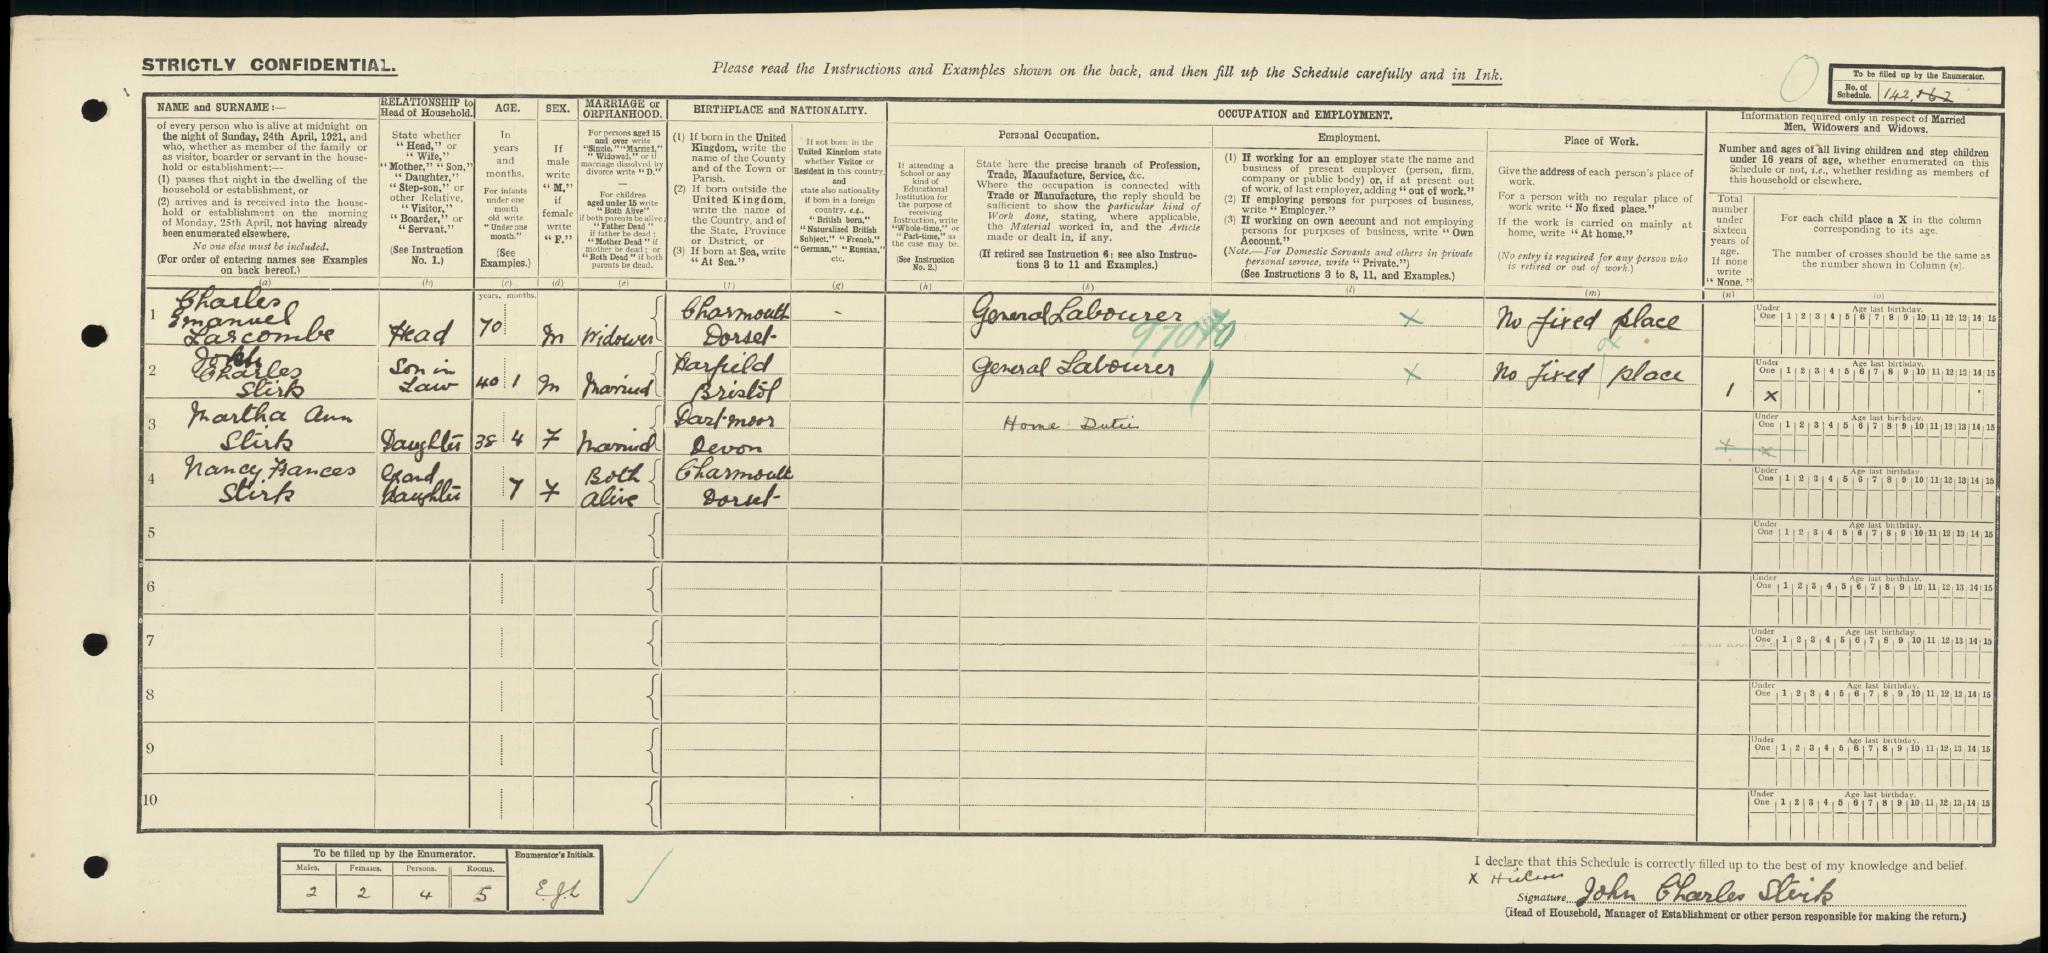 STRICTLY CONFIDENTIAL.
Please read the Instructions and Examples shown on the back, and then fill up the Schedule carefully and in Ink.
To be filled up by the Enumerator.
No. of Schedule. 142.
NAME and SURNAME:—
of every person who is alive at midnight on
the night of Sunday, 24th April, 1921, and
who, whether as member of the family or
as visitor, boarder or servant in the house-
hold or establishment:—
(1) passes that night in the dwelling of the
household or establishment, or
(2) arrives and is received into the house-
hold or establishment on the morning
of Monday, 25th April, not having already
been enumerated elsewhere.
No one else must be included.
(For order of entering names see Examples
on back hereof.)
(a)
RELATIONSHIP to
Head of Household.
State whether
"Head," or
"Wife,"
"Mother," "Son,"
"Daughter,"
"Step-son," or
other Relative,
"Visitor,"
"Boarder," or
"Servant."
(See Instruction
No. 1.)
(b)
AGE.
In
years
and
months.
For infants
under one
month
old write
"Under one
month."
(See
Examples.)
(c)
years. months.
SEX.
If
male
write
"M,"
if
female
write
"F."
(d)
MARRIAGE or
ORPHANHOOD.
For persons aged 15
and over write
"Single," "Married,"
"Widowed," or if
marriage dissolved by
divorce write "D."
For children
aged under 15 write
"Both Alive"
if both parents be alive;
"Father Dead"
if father be dead;
"Mother Dead" if
mother be dead; or
"Both Dead" if both
parents be dead.
(e)
BIRTHPLACE and NATIONALITY.
(1) If born in the United
Kingdom, write the
name of the County
and of the Town or
Parish.
(2) If born outside the
United Kingdom,
write the name of
the Country, and of
the State, Province
or District, or
(3) If born at Sea, write
"At Sea."
(f)
If not born in the
United Kingdom state
whether Visitor or
Resident in this country,
and
state also nationality
if born in a foreign
country, e.g.,
"British born,"
"Naturalized British
Subject," "French,"
"German," "Russian,"
etc.
(g)
OCCUPATION and EMPLOYMENT.
If attending a
School or any
kind of
Educational
Institution for
the purpose of
receiving
Instruction, write
"Whole-time," or
"Part-time," as
the case may be.
(See Instruction
No. 2.)
(h)
Personal Occupation.
State here the precise branch of Profession,
Trade, Manufacture, Service, &c.
Where the occupation is connected with
Trade or Manufacture, the reply should be
sufficient to show the particular kind of
Work done, stating, where applicable,
the Material worked in, and the Article
made or dealt in, if any.
(If retired see Instruction 6; see also Instruc-
tions 3 to 11 and Examples.)
(k)
Employment.
(1) If working for an employer state the name and
business of present employer (person, firm,
company or public body) or, if at present out
of work, of last employer, adding "out of work."
(2) If employing persons for purposes of business,
write "Employer."
(3) If working on own account and not employing
persons for purposes of business, write "Own
Account."
(Note.—For Domestic Servants and others in private
personal service, write "Private.")
(See Instructions 3 to 8, 11, and Examples.)
(l)
Place of Work.
Give the address of each person's place of
work.
For a person with no regular place of
work write "No fixed place."
If the work is carried on mainly at
home, write "At home."
(No entry is required for any person who
is retired or out of work.)
(m)
Information required only in respect of Married
Men, Widowers and Widows.
Number and ages of all living children and step children
under 16 years of age, whether enumerated on this
Schedule or not, i.e., whether residing as members of
this household or elsewhere.
Total
number
under
sixteen
years of
age.
If none
write
"None."
(n)
For each child place a X in the column
corresponding to its age.
The number of crosses should be the same as
the number shown in Column (n).
(o)
1 Charles Emanuel Larcombe Head 70 M Widower Charmouth Dorset - General Labourer 97070 X No fixed place
Under One Age last birthday. 1 2 3 4 5 6 7 8 9 10 11 12 13 14 15
2 John Charles Stirk Son in Law 40 1 M Married Barfield Bristol General Labourer X No fixed place 1 X
Under One Age last birthday. 1 2 3 4 5 6 7 8 9 10 11 12 13 14 15
3 Martha Ann Stirk Daughter 38 4 F Married Dartmoor Devon Home Duties X X
Under One Age last birthday. 1 2 3 4 5 6 7 8 9 10 11 12 13 14 15
4 Nancy Frances Stirk Grand daughter 7 F Both alive Charmouth Dorset
Under One Age last birthday. 1 2 3 4 5 6 7 8 9 10 11 12 13 14 15
5
Under One Age last birthday. 1 2 3 4 5 6 7 8 9 10 11 12 13 14 15
6
Under One Age last birthday. 1 2 3 4 5 6 7 8 9 10 11 12 13 14 15
7
Under One Age last birthday. 1 2 3 4 5 6 7 8 9 10 11 12 13 14 15
8
Under One Age last birthday. 1 2 3 4 5 6 7 8 9 10 11 12 13 14 15
9
Under One Age last birthday. 1 2 3 4 5 6 7 8 9 10 11 12 13 14 15
10
Under One Age last birthday. 1 2 3 4 5 6 7 8 9 10 11 12 13 14 15
To be filled up by the Enumerator.
Males. Females. Persons. Rooms.
2 2 4 5
Enumerator's Initials.
E.J.L
I declare that this Schedule is correctly filled up to the best of my knowledge and belief.
X
Signature John Charles Stirk
(Head of Household, Manager of Establishment or other person responsible for making the return.)